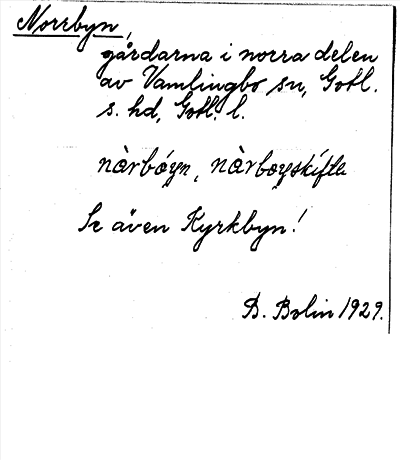 Norrbyn,
gårdarna i norra delen
av Vamlingbo sn, Gotl.
s. hd, Gotl. l.
nàrbóyn, nàrboyskífta
Se även Kyrkbyn!
B. Bolin 1929.